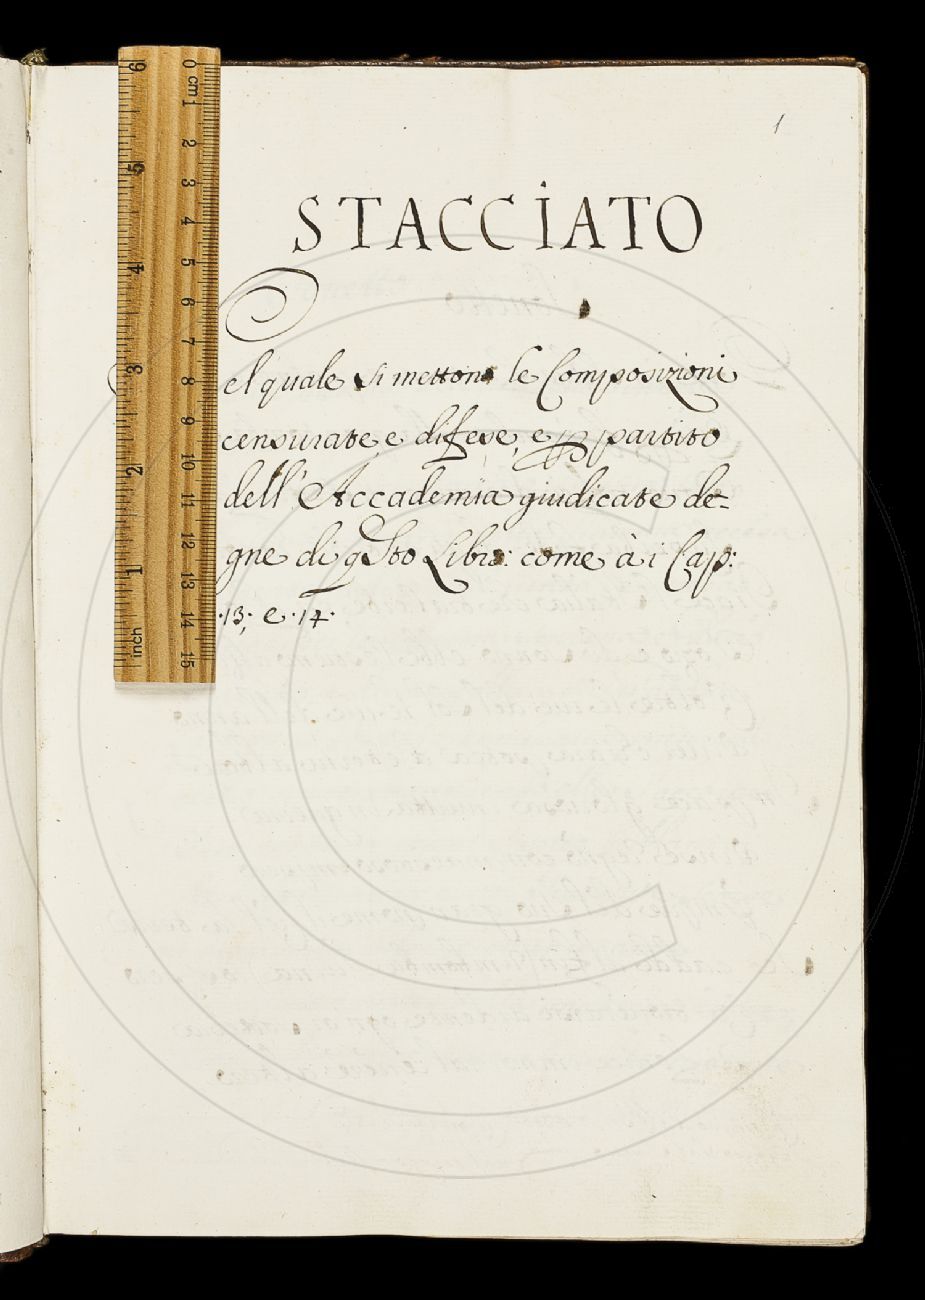 1
STACCIATO
el quale si mettono le Composizioni
censurate, e difese, e p partito
dell' Accademia giudicate de-
gne di qsto Libro: come à i Cap:
·13·, e ·14·
0 cm 1 2 3 4 5 6 7 8 9 10 11 12 13 14 15
6 5 4 3 2 1 inch